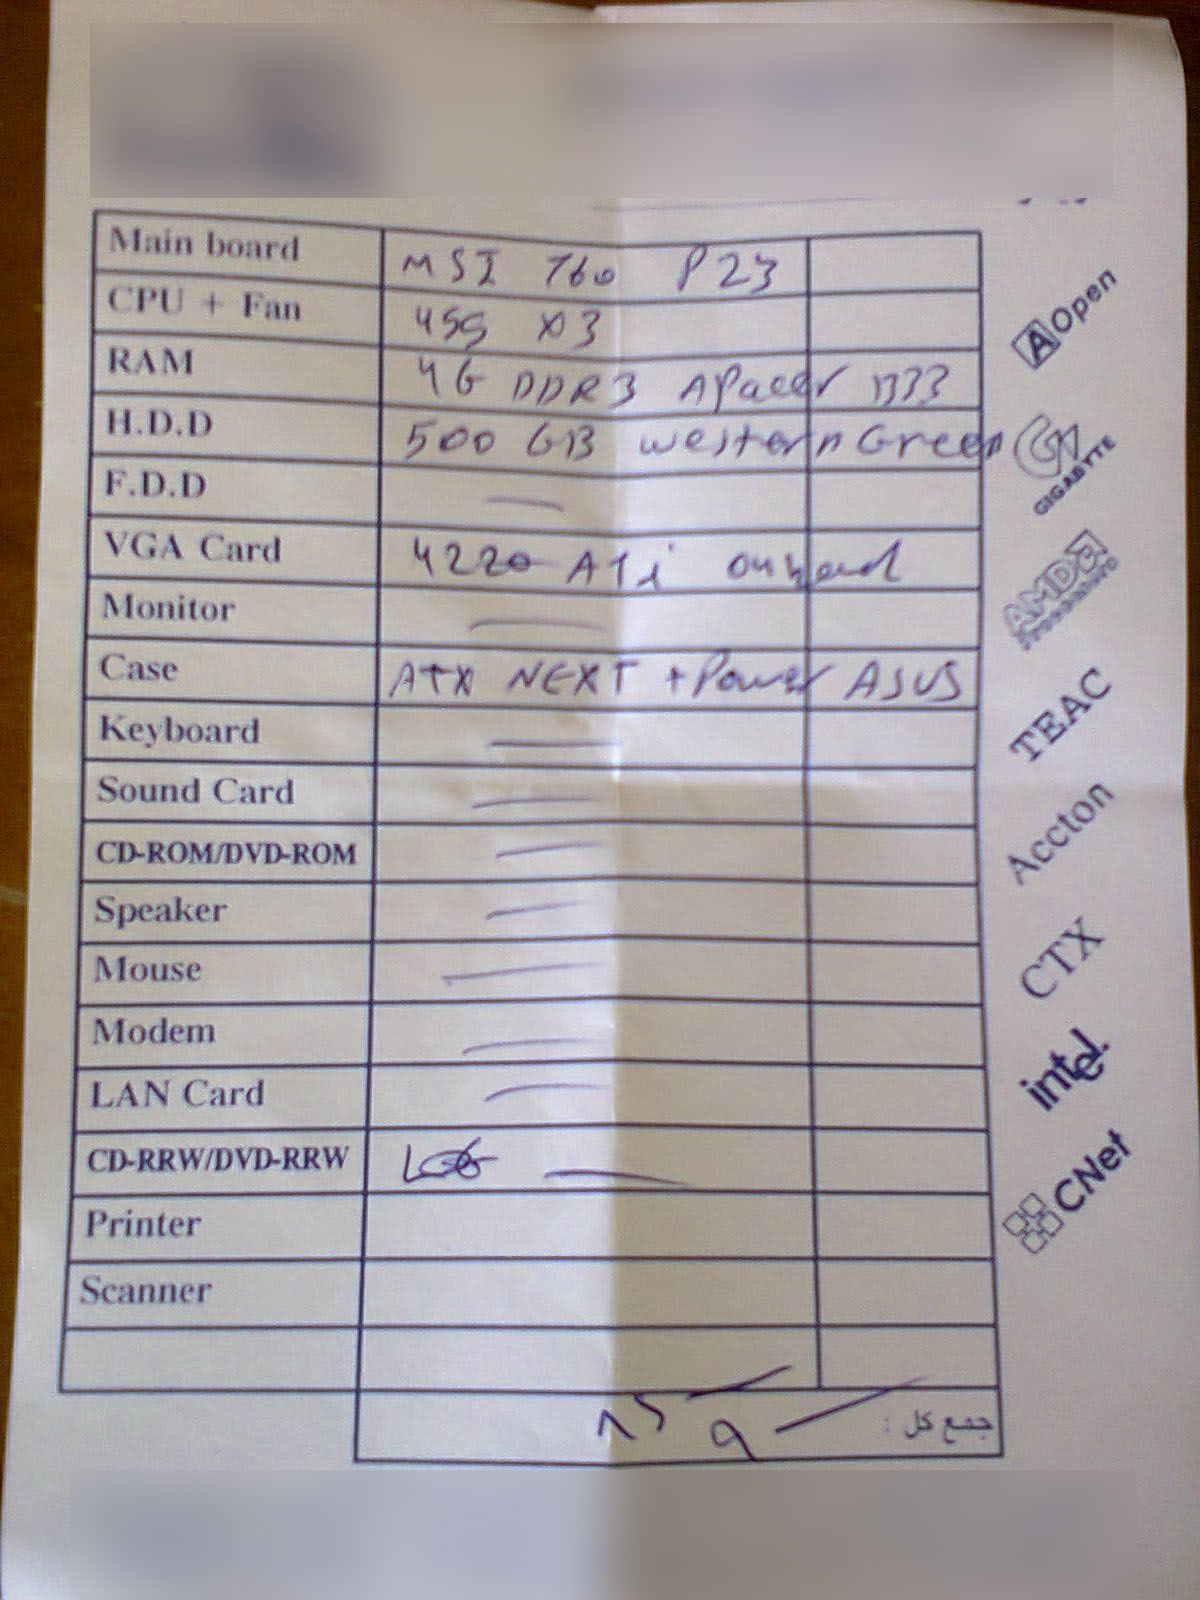 Main board MSI 760 P23
CPU + Fan 455 X3
RAM 4G DDR3 APacer 1333
H.D.D 500 GB western Green
F.D.D —
VGA Card 4220 ATi onboard
Monitor —
Case ATX NEXT + Power ASUS
Keyboard —
Sound Card —
CD-ROM/DVD-ROM —
Speaker —
Mouse —
Modem —
LAN Card —
CD-RRW/DVD-RRW —
Printer
Scanner
جمع کل :
AOpen
GIGABYTE
AMD
TEAC
Accton
CTX
intel
CNet